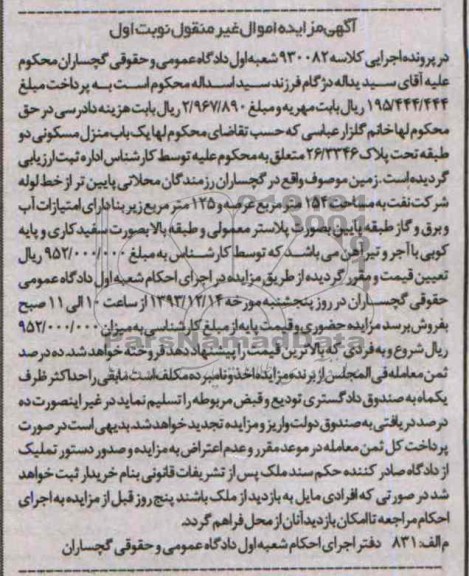 آگهی مزایده اموال غیر منقول نوبت اول
در پرونده اجرایی کلاسه ۹۳۰۰۸۲ شعبه اول دادگاه عمومی و حقوقی گچساران محکوم
علیه آقای سید یداله دژگام فرزند سید اسداله محکوم است به پرداخت مبلغ
۱۹۵/۴۴۴/۴۴۴ ریال بابت مهریه و مبلغ ۲/۹۶۷/۸۹۰ ریال بابت هزینه دادرسی در حق
محکوم لها خانم گلزار عباسی که حسب تقاضای محکوم لها یک باب منزل مسکونی دو
طبقه تحت پلاک ۲۶/۳۳۴۶ متعلق به محکوم علیه توسط کارشناس اداره ثبت ارزیابی
گردیده است. زمین موصوف واقع در گچساران رزمندگان محلاتی پایین تر از خط لوله
شرکت نفت به مساحت ۱۵۴ متر مربع عرصه و ۱۲۵ متر مربع زیر بنا دارای امتیازات آب
و برق و گاز طبقه پایین بصورت پلاستر معمولی و طبقه بالا بصورت سفید کاری و پایه
کوبی با آجر و تیر آهن می باشد که توسط کارشناس به مبلغ ۹۵۲/۰۰۰/۰۰۰ ریال
تعیین قیمت و مقرر گردیده از طریق مزایده در اجرای احکام شعبه اول دادگاه عمومی
حقوقی گچساران در روز پنجشنبه مورخه ۱۳۹۳/۱۲/۱۴ از ساعت ۱۰ الی ۱۱ صبح
بفروش برسد مزایده حضوری و قیمت پایه از مبلغ کارشناسی به میزان ۹۵۲/۰۰۰/۰۰۰
ریال شروع و به فردی که بالاترین قیمت را پیشنهاد دهد فروخته خواهد شد. ده درصد
ثمن معامله فی المجلس از برنده مزایده اخذ و نامبرده مکلف است مابقی را حداکثر ظرف
یکماه به صندوق دادگستری تودیع و قبض مربوطه را تسلیم نماید در غیر اینصورت ده
درصد دریافتی به صندوق دولت واریز و مزایده تجدید خواهد شد. بدیهی است در صورت
پرداخت کل ثمن معامله در موعد مقرر و عدم اعتراض به مزایده و صدور دستور تملیک
از دادگاه صادر کننده حکم سند ملک پس از تشریفات قانونی بنام خریدار ثبت خواهد
شد در صورتی که افرادی مایل به بازدید از ملک باشند پنج روز قبل از مزایده به اجرای
احکام مراجعه تا امکان بازدید آنان از محل فراهم گردد.
م الف: ۸۳۱ دفتر اجرای احکام شعبه اول دادگاه عمومی و حقوقی گچساران
ParsNamadData